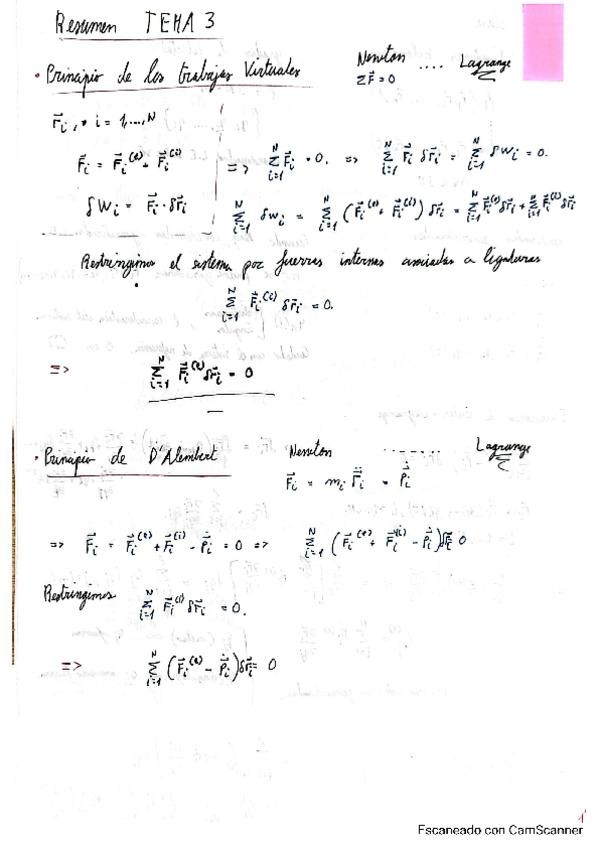 Resumen TEMA 3
· Principio de los trabajos Virtuales Newton .... Lagrange
ΣF⃗=0
r⃗i, * i = 1,...,N
F⃗i = F⃗i^(e) + F⃗i^(i) => Σ_{i=1}^N F⃗i = 0. => Σ_{i=1}^N F⃗i δr⃗i = Σ_{i=1}^N δWi = 0.
δWi = F⃗i · δr⃗i Σ_{i=1}^N δWi = Σ_{i=1}^N (F⃗i^(e) + F⃗i^(i)) δr⃗i = Σ_{i=1}^N F⃗i^(e) δr⃗i + Σ_{i=1}^N F⃗i^(i) δr⃗i
Restringimos el sistema por fuerzas internas asociadas a ligaduras
Σ_{i=1}^N F⃗i^(i) δr⃗i = 0.
=> Σ_{i=1}^N F⃗i^(e) δr⃗i = 0
· Principio de D'Alembert Newton ...... Lagrange
F⃗i = mi r⃗̈i = p⃗̇i
=> F⃗i = F⃗i^(e) + F⃗i^(i) - p⃗̇i = 0 => Σ_{i=1}^N (F⃗i^(e) + F⃗i^(i) - p⃗̇i) δr⃗i 0
Restringimos Σ_{i=1}^N F⃗i^(i) δr⃗i = 0.
=> Σ_{i=1}^N (F⃗i^(e) - p⃗̇i) δr⃗i = 0
1
Escaneado con CamScanner